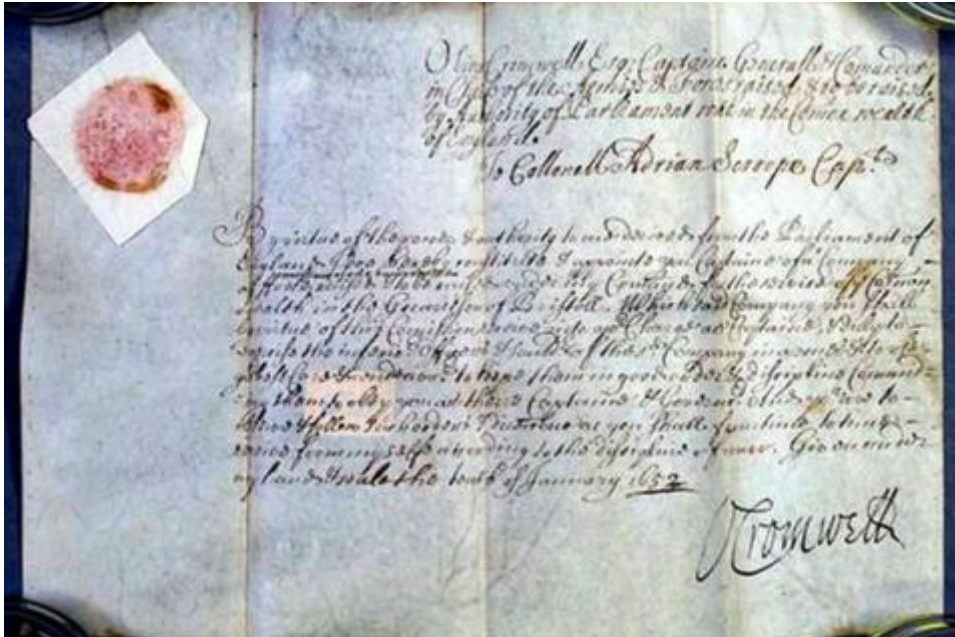 Oliver Cromwell Esq. Captaine Generall & Comander
in Cheife of the Armies & Forces raised & to be raised
by Authority of Parliament within the Comon wealth
of England.
To Collonell Adrian Scroope Capt.
By virtue of the power & authority to mee derived from the Parliament of
England I doe hereby constitute & appointe you Captaine of a Company
of foote under my Comand for the service of Comon
wealth in the Garrison of Bristoll. Which said Company you shall
by virtue of this Comission receive into yor Charge as Captaine, & dilig-
exercise the inferior Officers & Souldrs of the sd Company in
best Care & endeavor to keepe them in good order & discipline Comand-
ing them to obey you as their Captaine
observe & follow such orders & as you shall from time to time re-
ceave from my selfe according to the discipline of warr. Given under
my hand & seale the tenth of January 1652
OCromwell